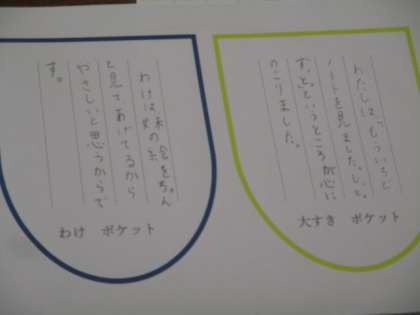 わたしは、「もういちど
ノートを見ました。じっと。
ずっと。」というところが心に
のこりました。
大すき ポケット
わけは妹の絵をちゃん
と見てあげてるから
やさしいと思うからで
す。
わけ ポケット